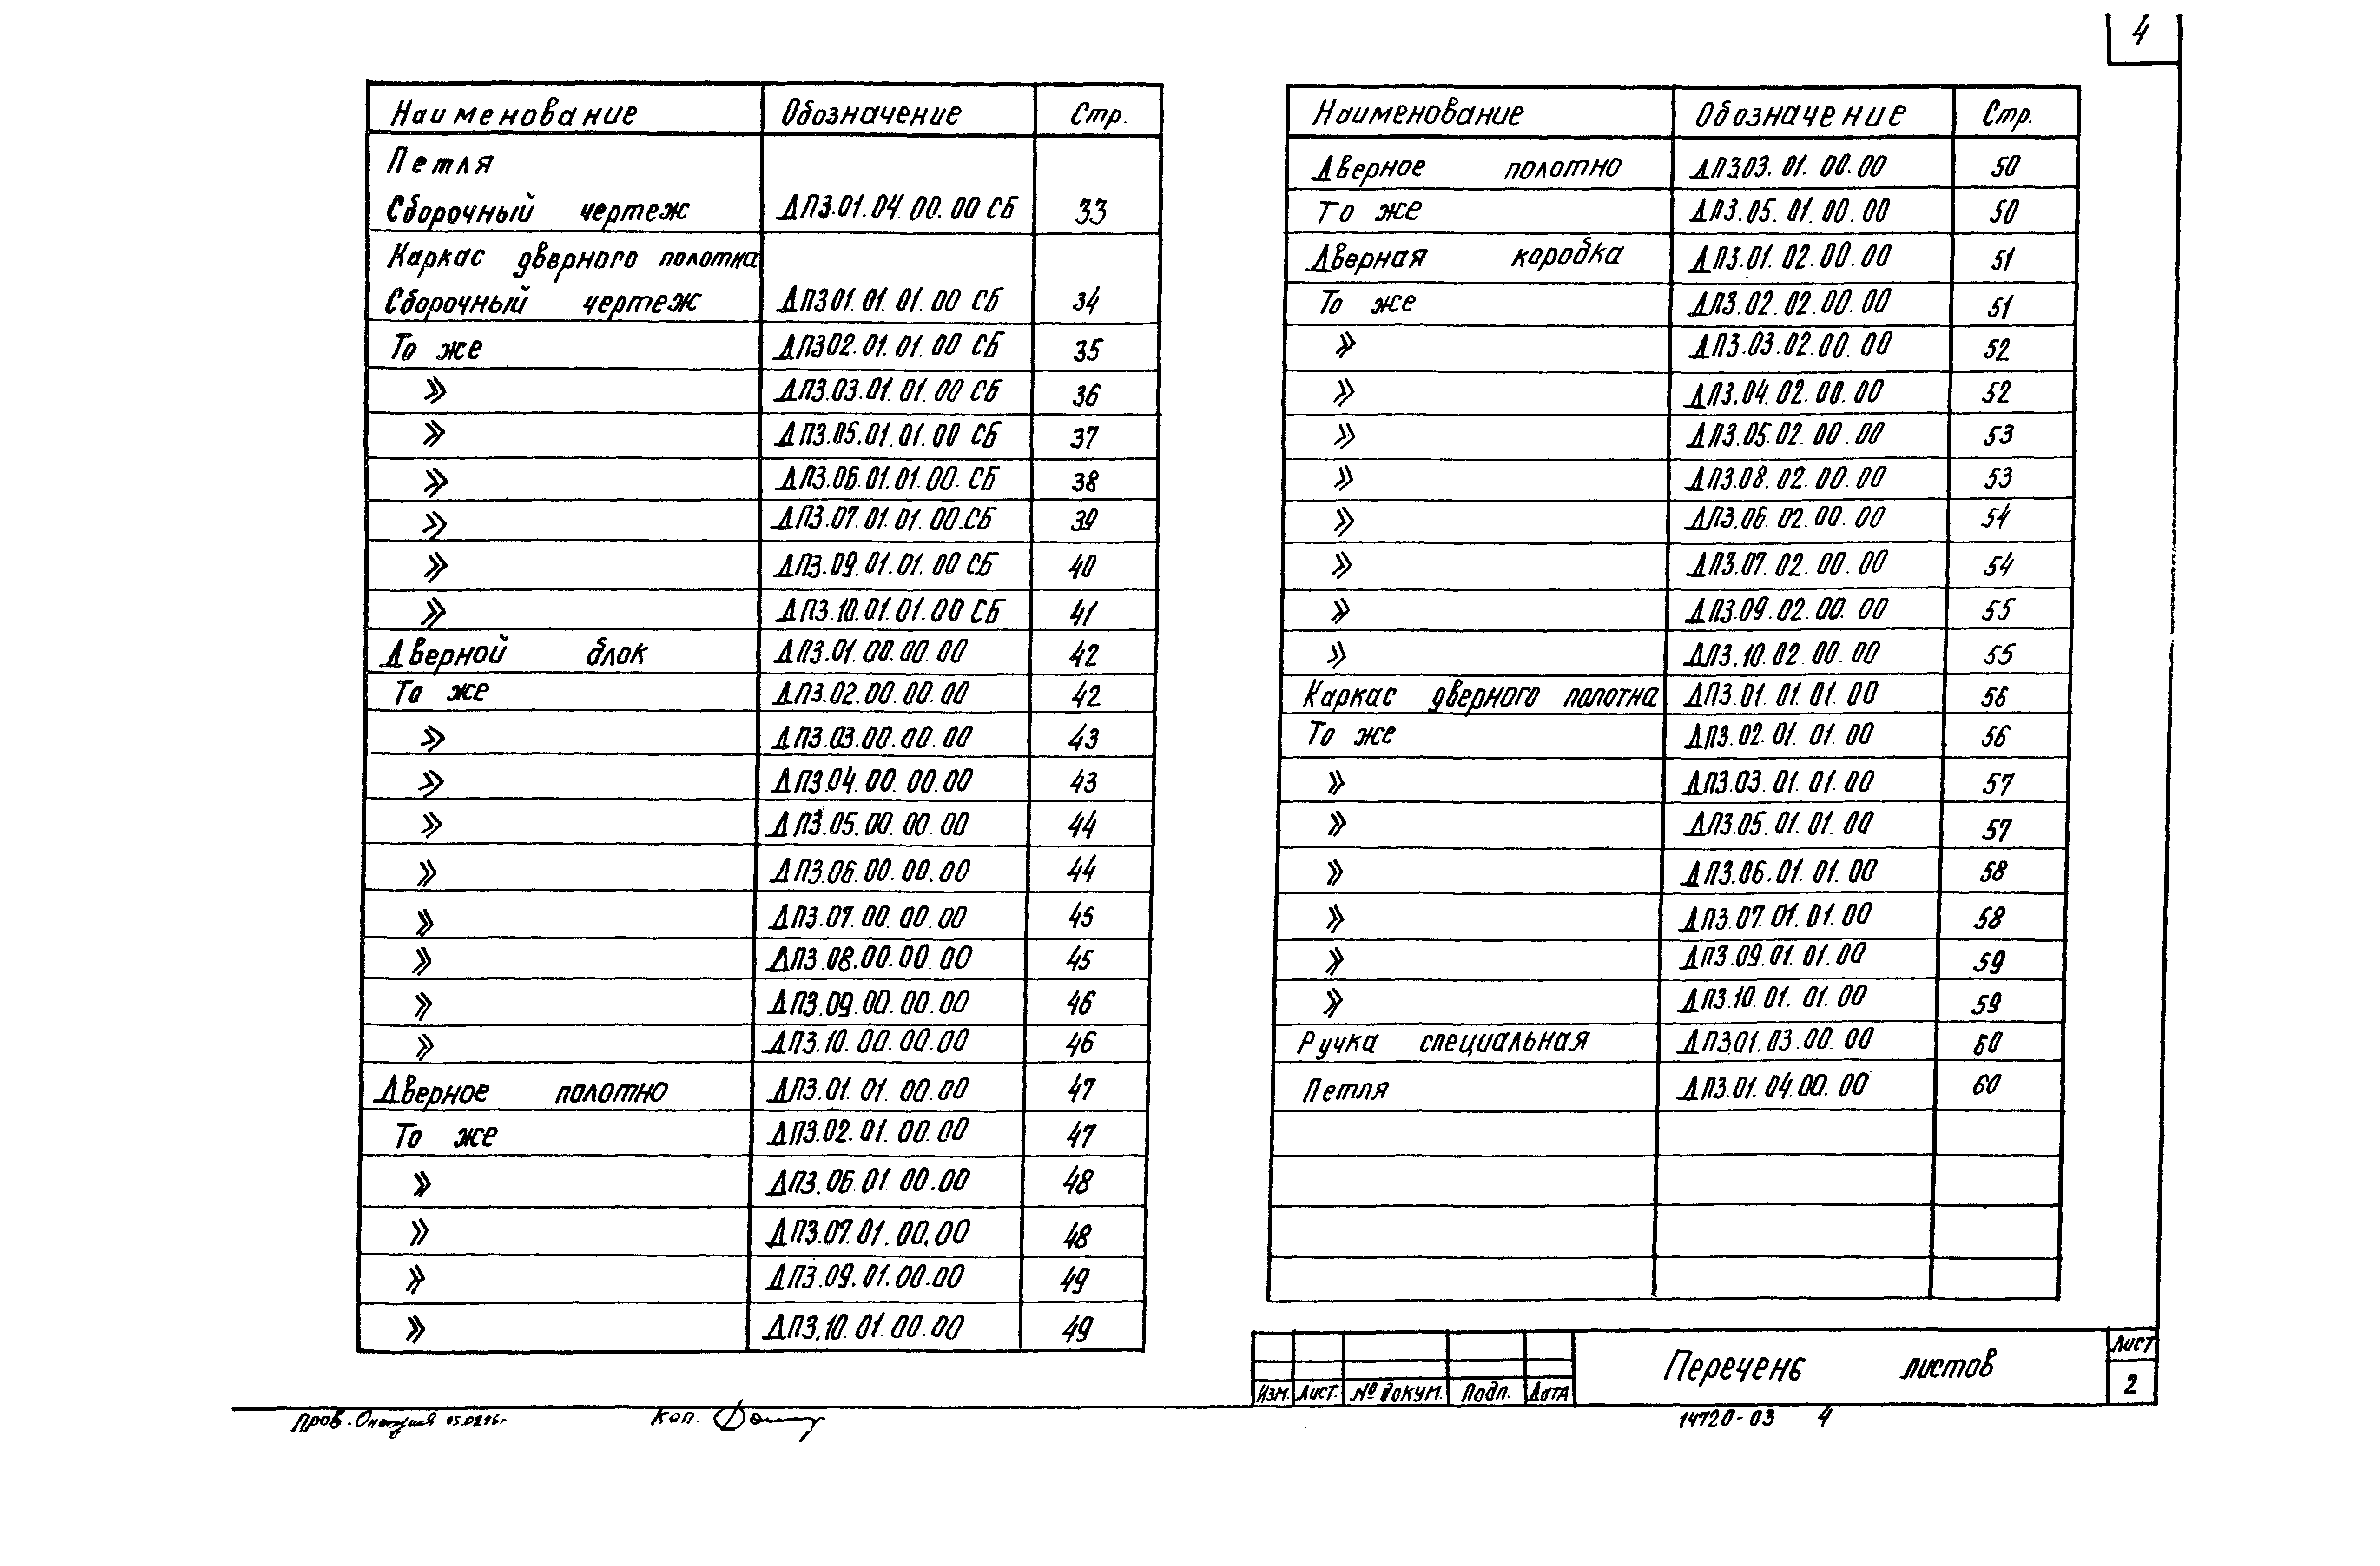 4
Наименование Обозначение Стр.
Петля
Сборочный чертеж ДП3.01.04.00.00 СБ 33
Каркас дверного полотна
Сборочный чертеж ДП301.01.01.00 СБ 34
То же ДП302.01.01.00 СБ 35
» ДП3.03.01.01.00 СБ 36
» ДП3.05.01.01.00 СБ 37
» ДП3.06.01.01.00. СБ 38
» ДП3.07.01.01.00.СБ 39
» ДП3.09.01.01.00 СБ 40
» ДП3.10.01.01.00 СБ 41
Дверной блок ДП3.01.00.00.00 42
То же ДП3.02.00.00.00 42
» ДП3.03.00.00.00 43
» ДП3.04.00.00.00 43
» ДП3.05.00.00.00 44
» ДП3.06.00.00.00 44
» ДП3.07.00.00.00 45
» ДП3.08.00.00.00 45
» ДП3.09.00.00.00 46
» ДП3.10.00.00.00 46
Дверное полотно ДП3.01.01.00.00 47
То же ДП3.02.01.00.00 47
» ДП3.06.01.00.00 48
» ДП3.07.01.00.00 48
» ДП3.09.01.00.00 49
» ДП3.10.01.00.00 49
Наименование Обозначение Стр.
Дверное полотно ДП303.01.00.00 50
То же ДП3.05.01.00.00 50
Дверная коробка ДП3.01.02.00.00 51
То же ДП3.02.02.00.00 51
» ДП3.03.02.00.00 52
» ДП3.04.02.00.00 52
» ДП3.05.02.00.00 53
» ДП3.08.02.00.00 53
» ДП3.06.02.00.00 54
» ДП3.07.02.00.00 54
» ДП3.09.02.00.00 55
» ДП3.10.02.00.00 55
Каркас дверного полотна ДП3.01.01.01.00 56
То же ДП3.02.01.01.00 56
» ДП3.03.01.01.00 57
» ДП3.05.01.01.00 57
» ДП3.06.01.01.00 58
» ДП3.07.01.01.00 58
» ДП3.09.01.01.00 59
» ДП3.10.01.01.00 59
Ручка специальная ДП301.03.00.00 60
Петля ДП3.01.04.00.00 60
Изм. Лист. № докум. Подп. Дата
Перечень листов
Лист
2
Пров. 05.0296г
Коп.
14720-03 4